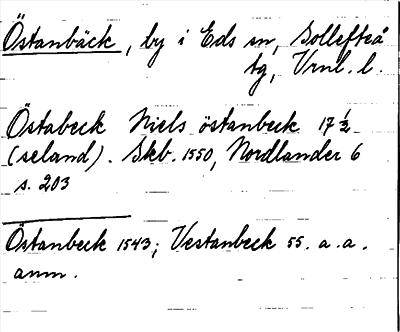 Östanbäck, by i Eds sn, Sollefteå
tg, Vrnl. l.
Östabeck Niels östanbeck 17 ½
(seland). Skb. 1550, Nordlander 6
s. 203
Östanbeck 1543; Vestanbeck 55. a.a.
anm.